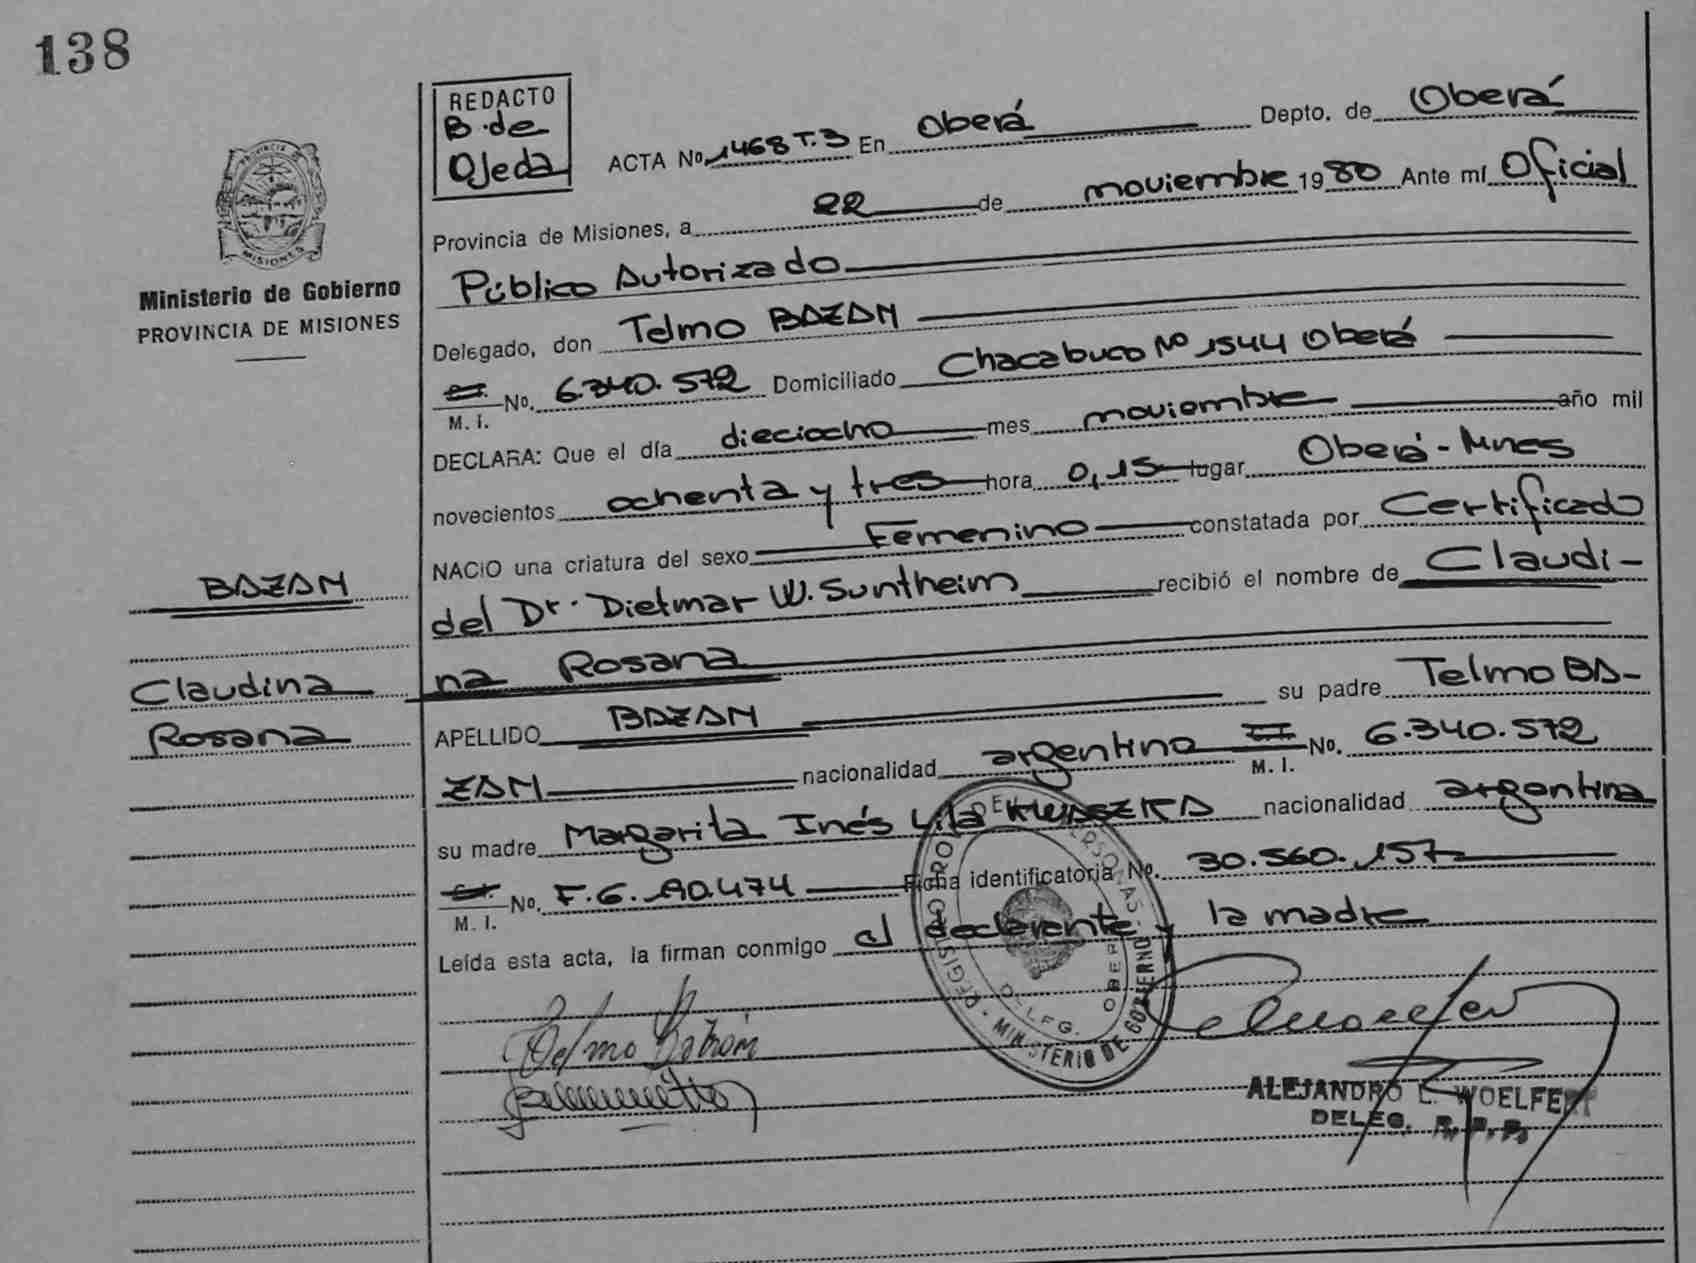 138
REDACTO
B. de
Ojeda
ACTA No 1468 T.3 En Oberá Depto. de Oberá
Provincia de Misiones, a 22 de noviembre 1980 Ante mí Oficial
Público Autorizado
Delegado, don Telmo BAZAN
M. I. No. 6.340.572 Domiciliado Chacabuco Nº 1544 Oberá
DECLARA: Que el día dieciocho mes noviembre año mil
novecientos ochenta y tres hora 0,15 lugar Oberá - Mnes
NACIO una criatura del sexo Femenino constatada por Certificado
del Dr. Dietmar W. Suntheim recibió el nombre de Claudi-
na Rosana
APELLIDO BAZAN su padre Telmo BA-
ZAN nacionalidad argentino M. I. No. 6.340.572
su madre Margarita Inés nacionalidad argentina
M. I. No. F.6.190.474 Ficha identificatoria No. 30.560.157
Leída esta acta, la firman conmigo el declarante y la madre
PROVINCIA DE
MISIONES
Ministerio de Gobierno
PROVINCIA DE MISIONES
BAZAN
Claudina
Rosana
MINISTERIO DE GOBIERNO
ALEJANDRO E. WOELFERT
DELEG. R. P. P.